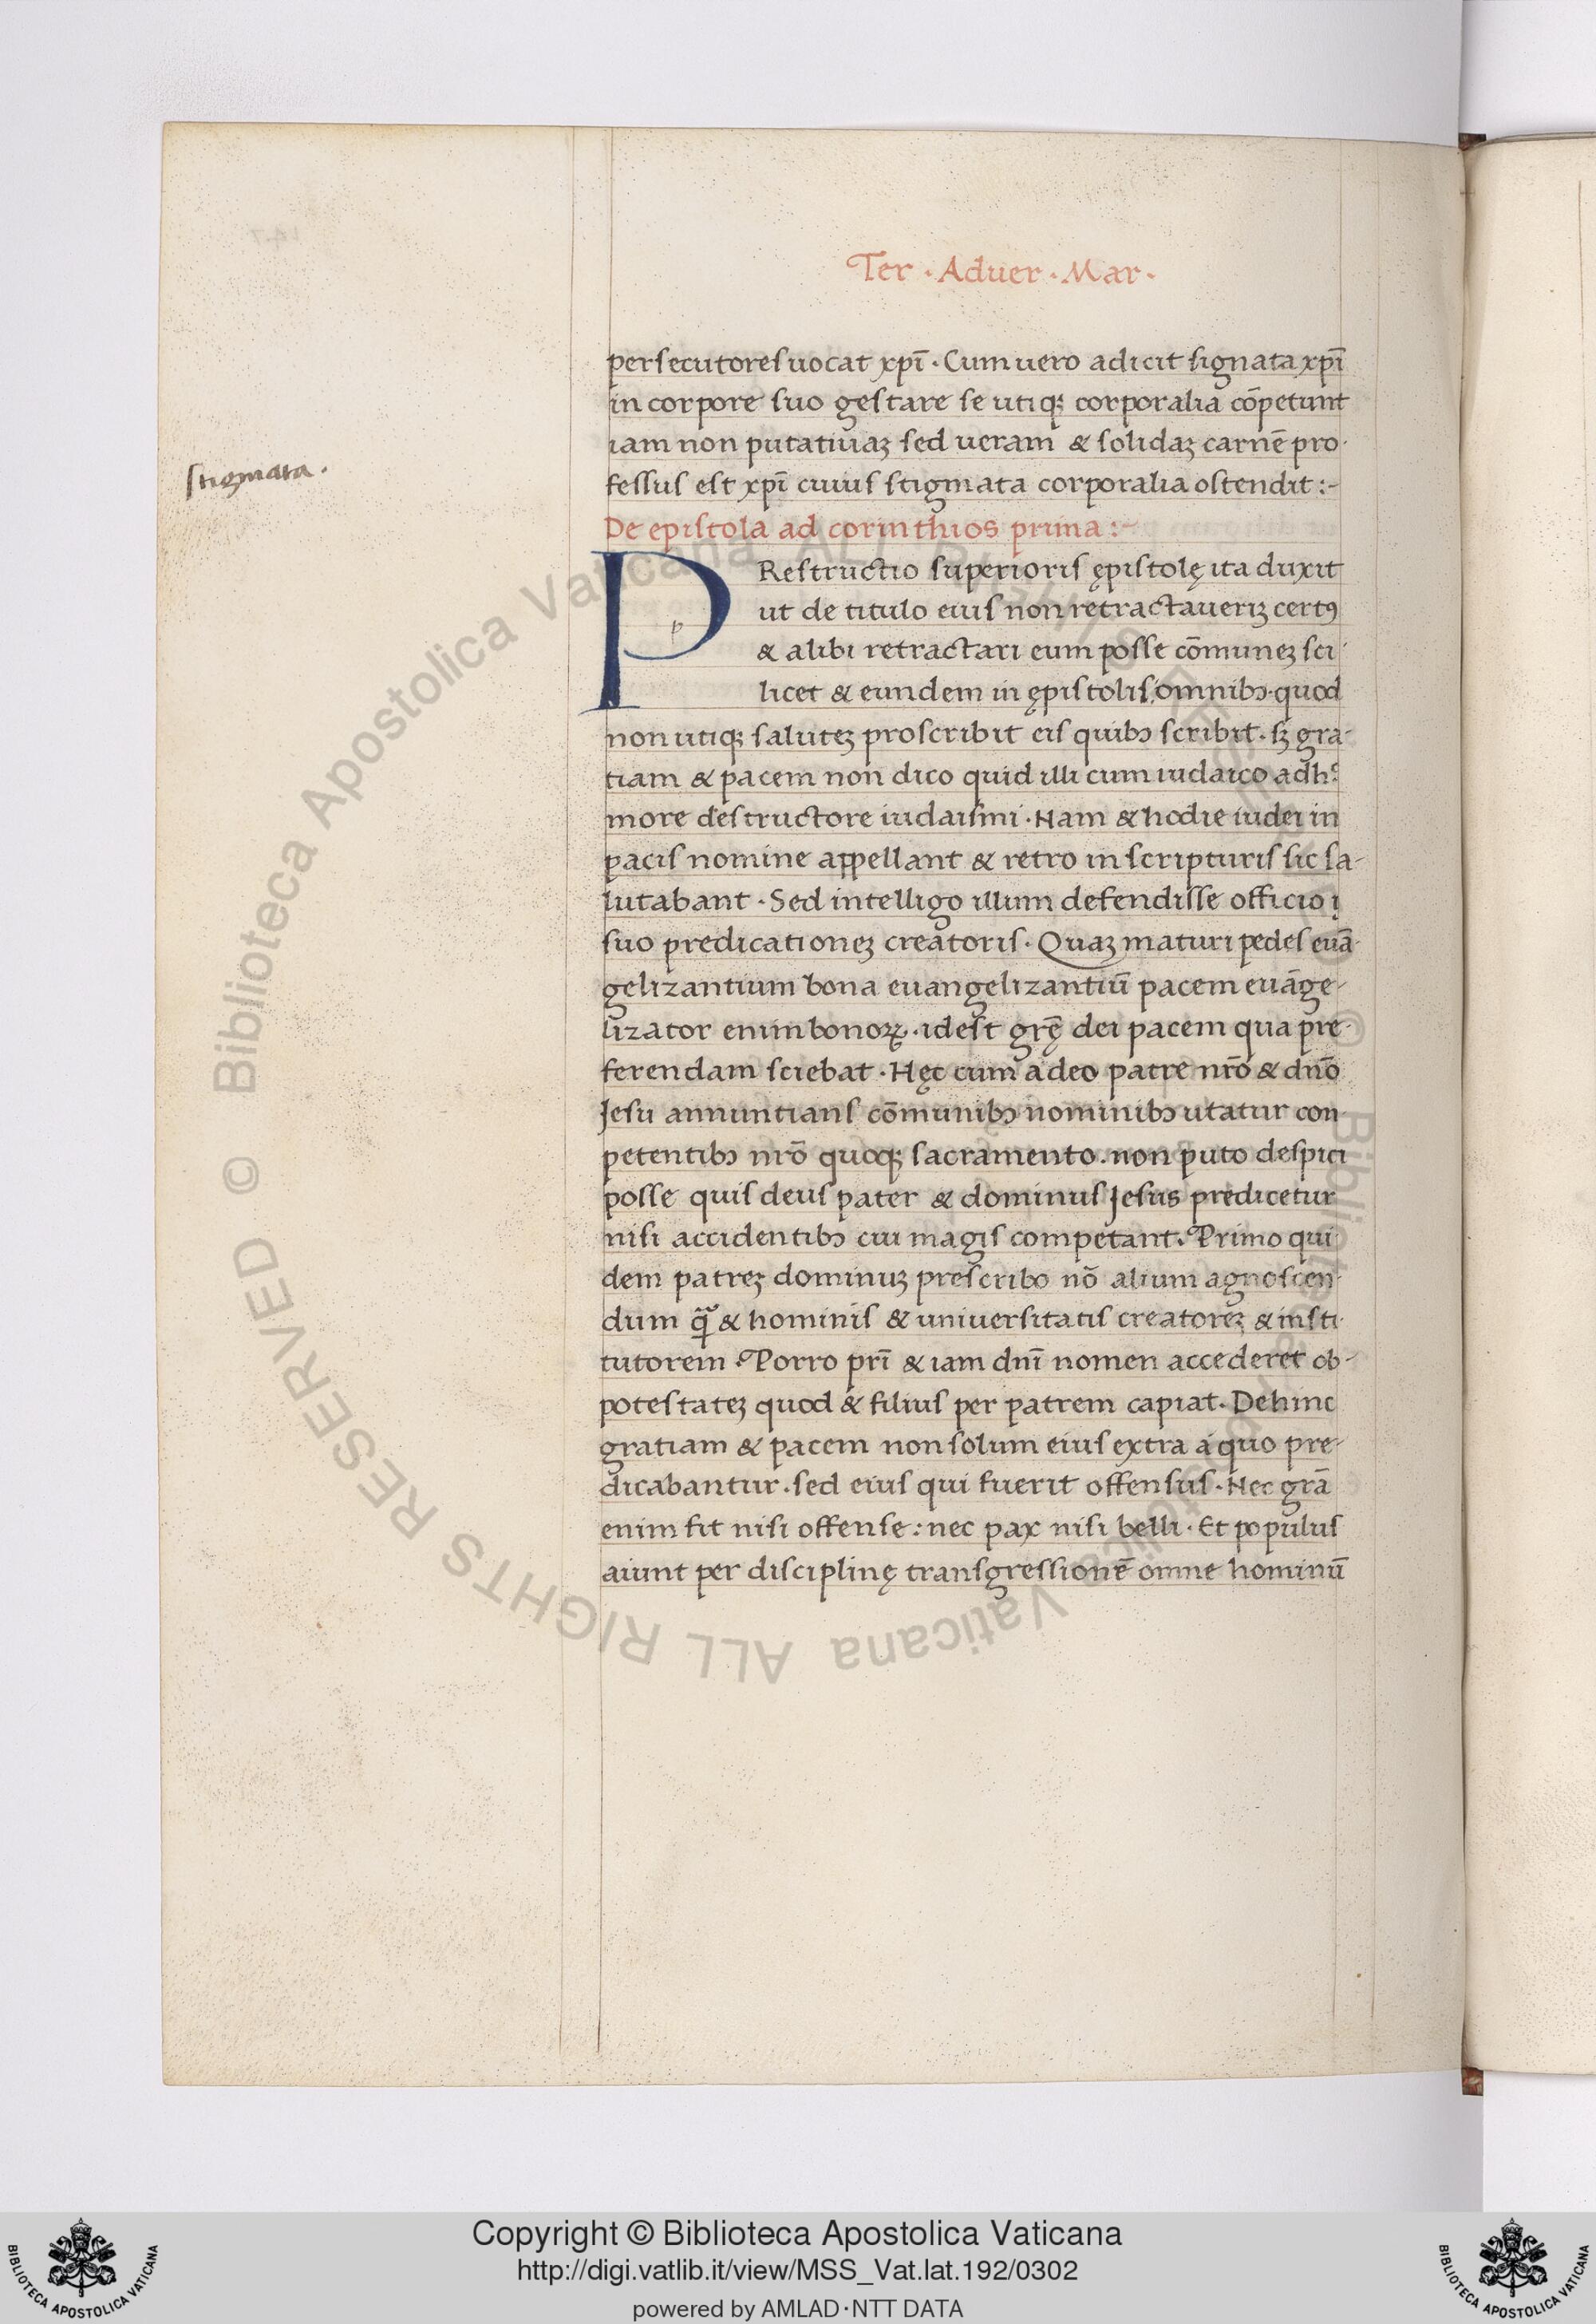 Ter · Aduer · Mar ·
perſecutoreſ uocat xpī · Cum uero adicit ſignata xpī
in corpore ſuo geſtare ſe utiqꝫ corporalia cōpetunt
iam non putatiuaꝫ ſed ueram & ſolidaꝫ carnē pro-
feſſuſ eſt xpī cuiuſ ſtigmata corporalia oſtendit :-
stigmata.
De epiſtola ad corinthios prima :-
PReſtructio ſuperioriſ ępiſtolę ita duxit
ut de titulo eiuſ non retractaueriꝫ certꝯ
& alibi retractari eum poſſe cōmuneꝫ ſci-
licet & eundem in ępiſtoliſ omnibꝰ · quod
non utiqꝫ ſaluteꝫ proſcribit eiſ quibꝰ ſcribit · ſꝫ gra-
tiam & pacem non dico quid illi cum iudaico adh᾿
more deſtructore iudaiſmi · Nam & hodie iudei in
paciſ nomine appellant & retro in ſcripturiſ ſic ſa-
lutabant · Sed intelligo illum defendiſſe officio ı
ſuo predicationeꝫ creatoriſ · Quaꝫ maturi pedeſ euā-
gelizantium bona euangelizantiū pacem euāge-
lizator enim bonoꝝ · ideſt grę̄ dei pacem qua pre-
ferendam ſciebat · Hęc cum a deo patre nr̄o & dn̄o
Jeſu annuntianſ cōmunibꝰ nominibꝰ utatur con-
petentibꝰ nr̄o quoqꝫ ſacramento · non puto deſpici
poſſe quiſ deuſ pater & dominuſ Jeſus predicetur
niſi accidentibꝰ cui magiſ competant · Primo qui-
dem patreꝫ dominuꝫ preſcribo nō alium agnoſcen-
dum ꝗ̃ & hominiſ & uniuerſitatiſ creatoreꝫ & inſti-
tutorem · Porro pr̄i & iam dn̄i nomen accederet ob-
poteſtateꝫ quod & filiuſ per patrem capiat · Dehinc
gratiam & pacem non ſolum eiuſ extra a quo pre-
dicabantur · ſed eiuſ qui fuerit offenſuſ · Nec grā
enim fit niſi offenſe : nec pax niſi belli · Et populuſ
aiunt per diſciplinę tranſgreſſionē omne hominū
© Biblioteca Apostolica Vaticana ALL RIGHTS RESERVED © Biblioteca Apostolica Vaticana ALL RIGHTS RESERVED
Copyright © Biblioteca Apostolica Vaticana
http://digi.vatlib.it/view/MSS_Vat.lat.192/0302
powered by AMLAD·NTT DATA
BIBLIOTECA APOSTOLICA VATICANA
BIBLIOTECA APOSTOLICA VATICANA